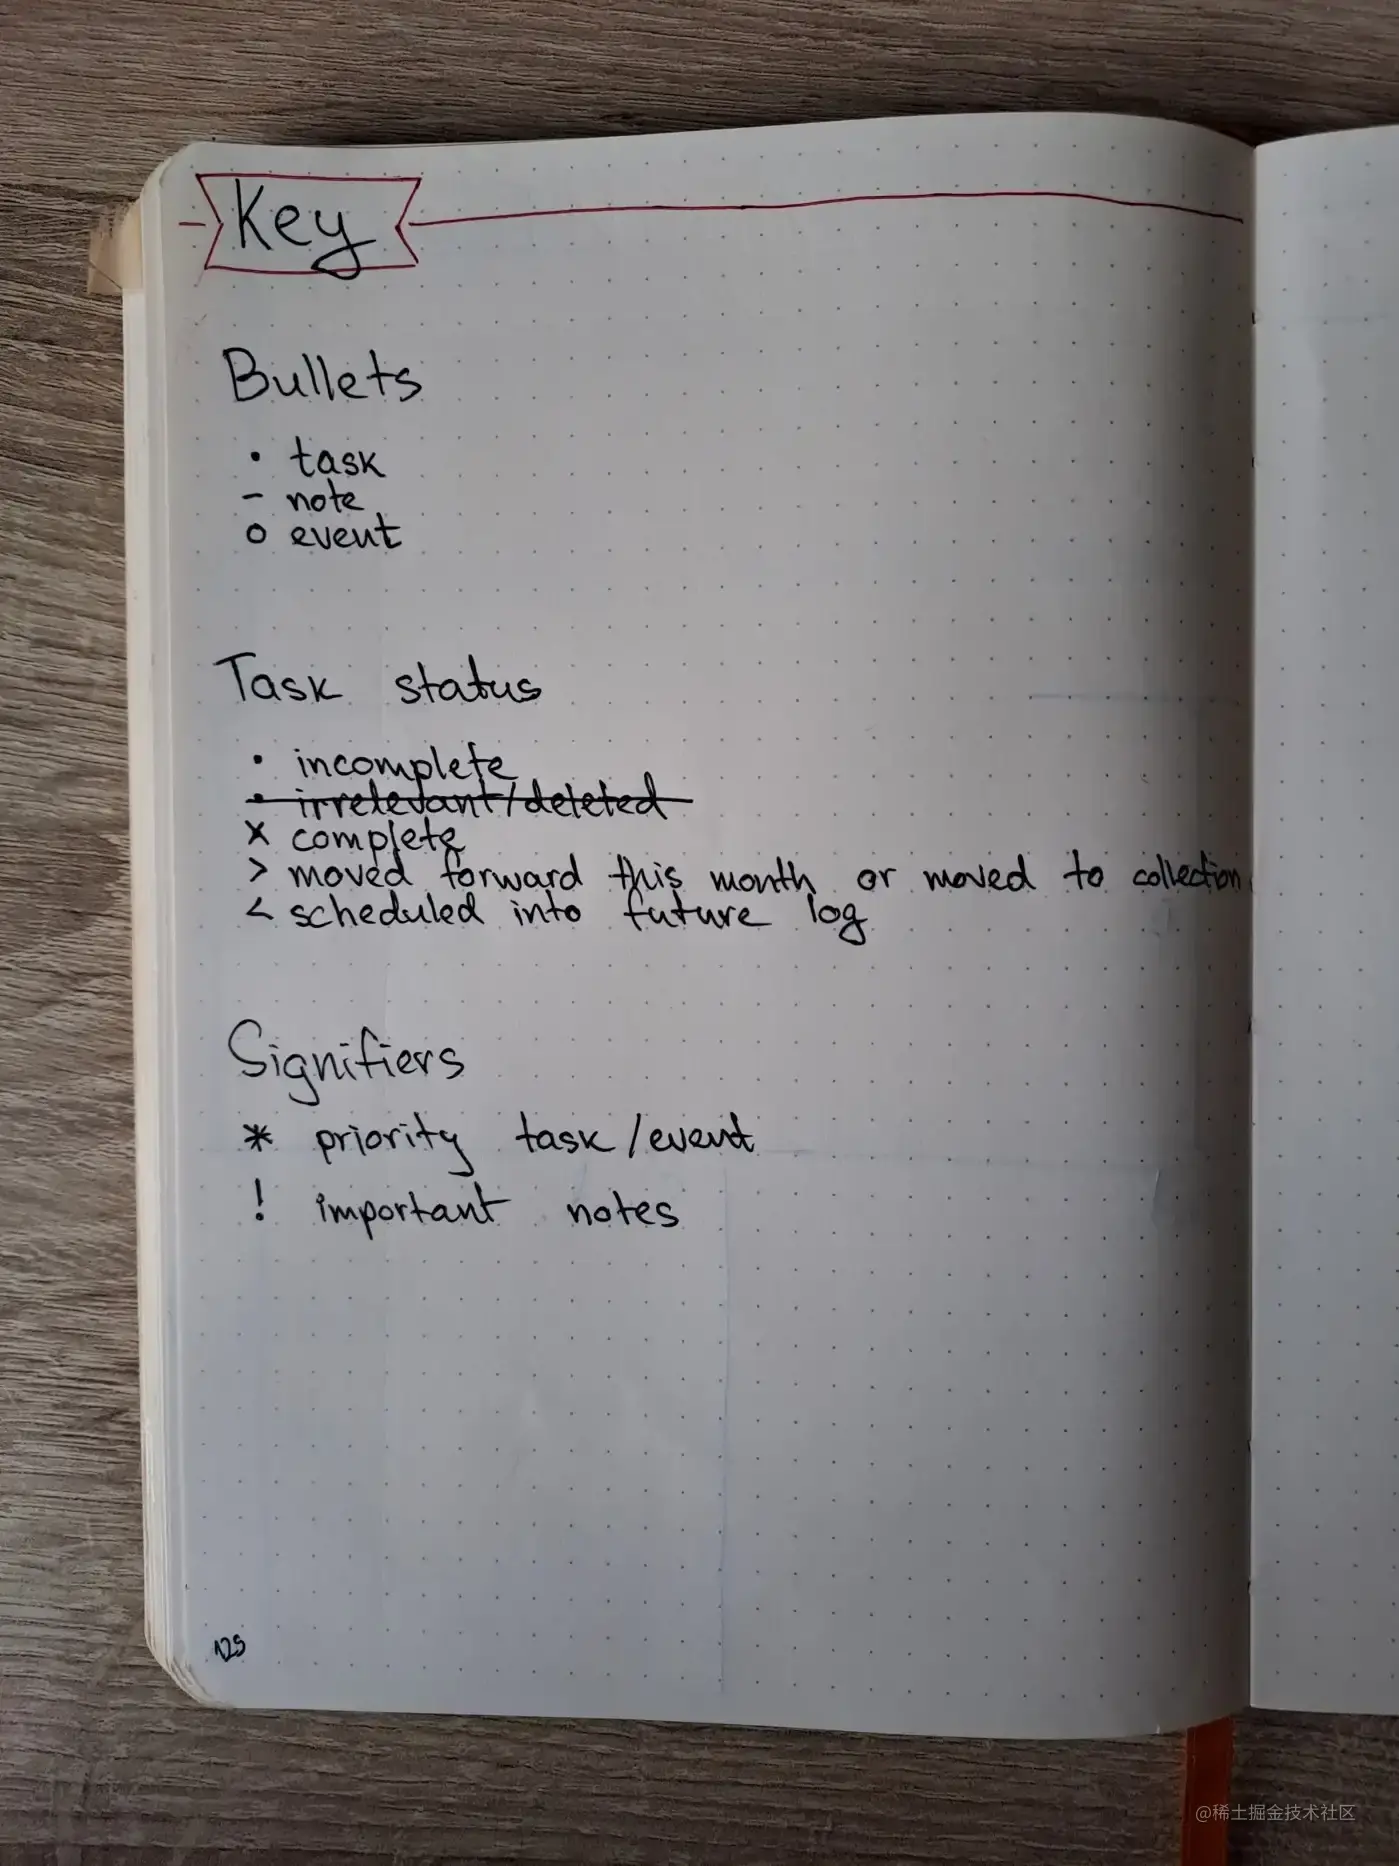 Key
Bullets
• task
– note
o event
Task status
• incomplete
• irrelevant/deleted
x complete
> moved forward this month or moved to collection
< scheduled into future log
Signifiers
* priority task/event
! important notes
125
@稀土掘金技术社区